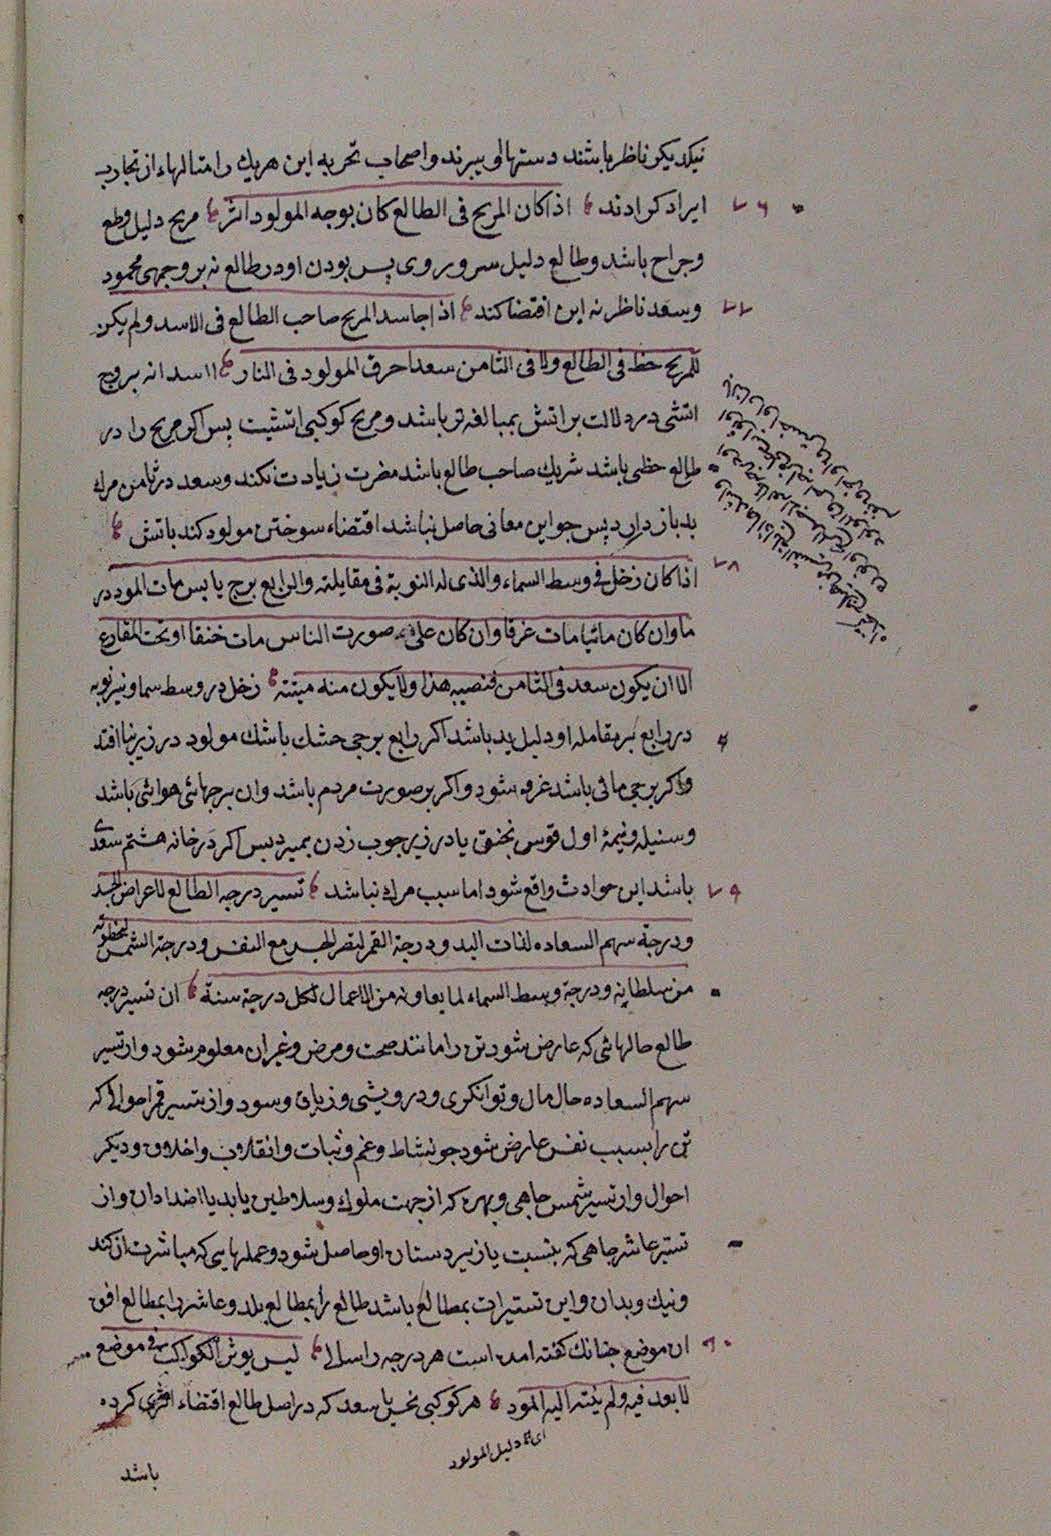 نیکدیکر ناظر باشند دستهااو ببرند واصحاب تجربه این هریك را مثالهاء از تجارب
ایراد کرادند اذا کان المریخ فی الطالع کان بوجه المولود اثر مریخ دلیل قطع
وجراح باشد وطالع دلیل سر و روی پس بودن او در طالع نه بر وجهی محمود
وسعد ناظر نه این اقتضا کند اذا جاسد المریخ صاحب الطالع فی الاسد ولم یکن
للمریخ حظ فی الطالع ولا فی الثامن سعد احرق المولود فی النار اسد از بروج
اتشی در دلالت بر اتش بمبالغه تر باشد و مریخ کوکبی اتشیت پس اکر مریخ را در
طالع حظی باشد شریك صاحب طالع باشد مضرت زیادت نکند وسعد در ثامن مرك
بد باز دارد پس جو این معانی حاصل نباشد اقتضاء سوختن مولود کند باتش
اذا کان زحل فی وسط السماء والذی له النوبة فی مقابلته والرابع برج یابس مات المولود در
ما وان کان مائیا مات غرقا وان کان علی صورت الناس مات خنقا او تحت المقارع
الا ان یکون سعد فی الثامن فنصیبه هذا ولا یکون منه میتته زحل در وسط سما و نیر نوبه
در رابع بر مقابله او دلیل بد باشد اکر رابع برجی خشك باشد مولود در زیر بنا افتد
واکر برجی مائی باشد غرق شود واکر بر صورت مردم باشد وان برجهائی هوائی باشد
و سنبله ونیمهٔ اول قوس بخنق یا در زیر جوب زدن بمیرد پس اکر در خانه هشتم سعدی
باشد این حوادث واقع شود اما سبب مرك نباشد تسیر درجه الطالع لاعراض الجسد
ودرجة سهم السعاده لذات الید ودرجة القمر لتصر الجسد مع النفس ودرجة الشمس لحظوته
من سلطانه ودرجة وسط السماء لما یعاونه من الاعمال لکل درجة سنة ان تسیر درجه
طالع حالهائی که عارض شود تن را مانند صحت ومرض وغیر ان معلوم شود واز تسیر
سهم السعاده حال مال وتوانکری ودرویشی وزیان وسود واز تسیر قمر احوالی که
تن را بسبب نفس عارض شود جو نشاط وغم وثبات وانقلاب واخلاق ودیکر
احوال واز تسیر شمس جاهی وبهره که از جهت ملوك وسلاطین یابد یا اضداد ان واز
تسیر عاشر جاهی که بنسبت با زیر دستان او حاصل شود وعملهایی که مباشرت ان کند
ونیك وبد ان واین تسیرات بمطالع باشد طالع را بمطالع بلد وعاشر را بمطالع افق
ان موضع جنانك کفته امده است هر درجه را سالی لیس یوثر الکواکب فی موضع
لا بعد فیه ولم ینته الیه المولود هر کوکبی نحس یا سعد که در اصل طالع اقتضاء اثری کرده
ای دلیل المولود
باشد